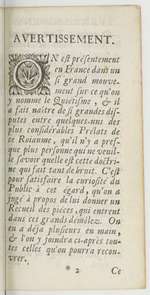 AVERTISSEMENT.
ON est présentement
en France dans un
si grand mouve-
ment sur ce qu'on
y nomme le Quietisme, & il
a fait naitre de si grandes dis-
putes entre quelques-uns des
plus considérables Prélats de
ce Roiaume, qu'il n'y a pres-
que plus personne qui ne veuil-
le savoir quelle est cette doctri-
ne qui fait tant de bruit. C'est
pour satisfaire la curiosité du
Public à cet égard, qu'on a
jugé à propos de lui donner un
Recueil des piéces, qui entrent
dans ces grands démêlez. On
en a déja plusieurs en main,
& l'on y joindra ci-après tou-
tes celles qu'on pourra recou-
vrer.
* 2 Ce